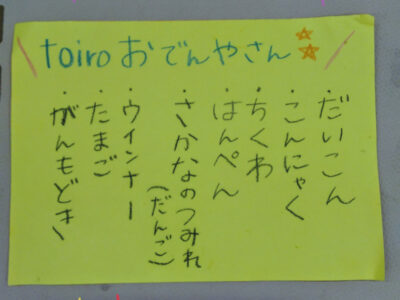 toiroおでんやさん
・だいこん
・こんにゃく
・ちくわ
・はんぺん
・さかなのつみれ
(だんご)
・ウインナー
・たまご
・がんもどき